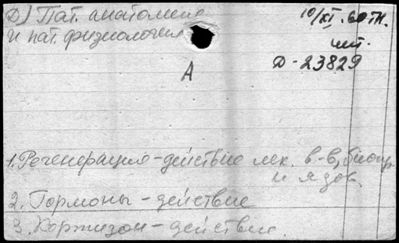 D) Пат. анатомия
и пат. физиология
10/XI. 60 тг.
чит.
D-23829
A
1. Регенерация - действие лек. в-в,
и ядов.
2. Гормоны - действие
3. Кортизон - действие.